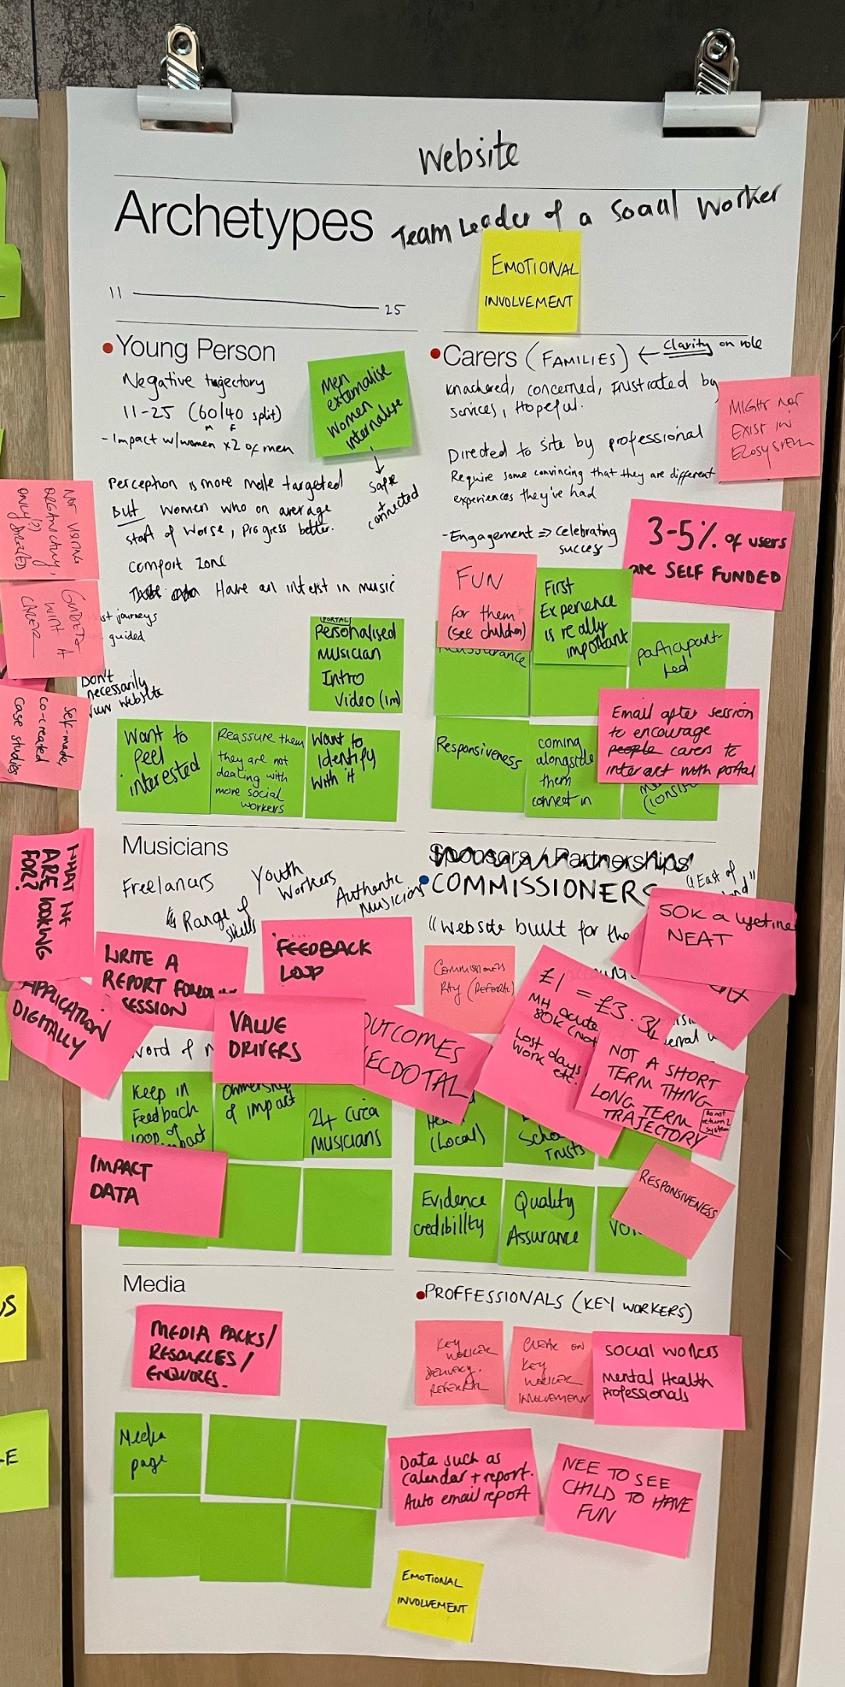 Website
Archetypes Team Leader of a Social Worker
EMOTIONAL
INVOLVEMENT
11 25
Young Person
Negative trajectory
11-25 (60/40 split)
M F
- Impact w/women x2 of men
Men
externalise
Women
internalise
Safe
+
connected
Perception is more male targeted
But women who on average
start of worse, progress better.
comfort zone
Have an interest in music
st journeys
guided
Don't
necessarily
view website
(PORTAL)
Personalised
MUSICIAN
Intro
Video (1m)
Want to
feel
interested
Reassure them
they are not
dealing with
more social
workers
Want to
Identify
with it
NOT VISITING
ORGANICALLY,
ONLY(?)
DIRECTED
GUIDED
WITH A
CAREER
Self-made,
co-created
case studies
Carers (FAMILIES) ← Clarity on role
concerned, frustrated by
services, Hopeful.
Directed to site by professional
Require some convincing that they are different
experiences they've had
-Engagement => Celebrating
success
MIGHT NOT
EXIST IN
ECOSYSTEM
3-5% of users
are SELF FUNDED
FUN
for them
(see children)
First
Experience
is really
important
Reassurance
participant
led
Email after session
to encourage
people carers to
interact with portal
Responsiveness
coming
alongside
them
connect in
Musicians
Freelancers
Youth
Workers
Authentic
Musicians
Range of
skills
WHAT WE
ARE LOOKING
FOR?
APPLICATION
DIGITALLY
WRITE A
REPORT FOLLOW
SESSION
FEEDBACK
LOOP
VALUE
DRIVERS
OUTCOMES
ECDOTAL
Word of
Keep in
Feedback
loop of
impact
Ownership
of impact
24 circa
MUSICIANS
IMPACT
DATA
Sponsors / Partnerships
COMMISSIONERS
"East of
"Website built for the
Commissioners
Pay (Referrer)
50K a lifetime
NEAT
£1 = £3.34
MH acute
80K (not
Lost days
work etc.
NOT A SHORT
TERM THING
LONG TERM
TRAJECTORY
Do not
return 2
system
(Local)
Trusts
Evidence
credibility
Quality
Assurance
RESPONSIVENESS
Media
MEDIA PACKS/
RESOURCES/
ENQUIRES.
Media
page
PROFFESSIONALS (KEY WORKERS)
KEY
WORKER
DELIVERY.
REFERRAL
CLEAR ON
KEY
WORKER
INVOLVEMENT
social workers
Mental Health
professionals
Data such as
Calendar + report.
Auto email report
NEE TO SEE
CHILD TO HAVE
FUN
EMOTIONAL
INVOLVEMENT